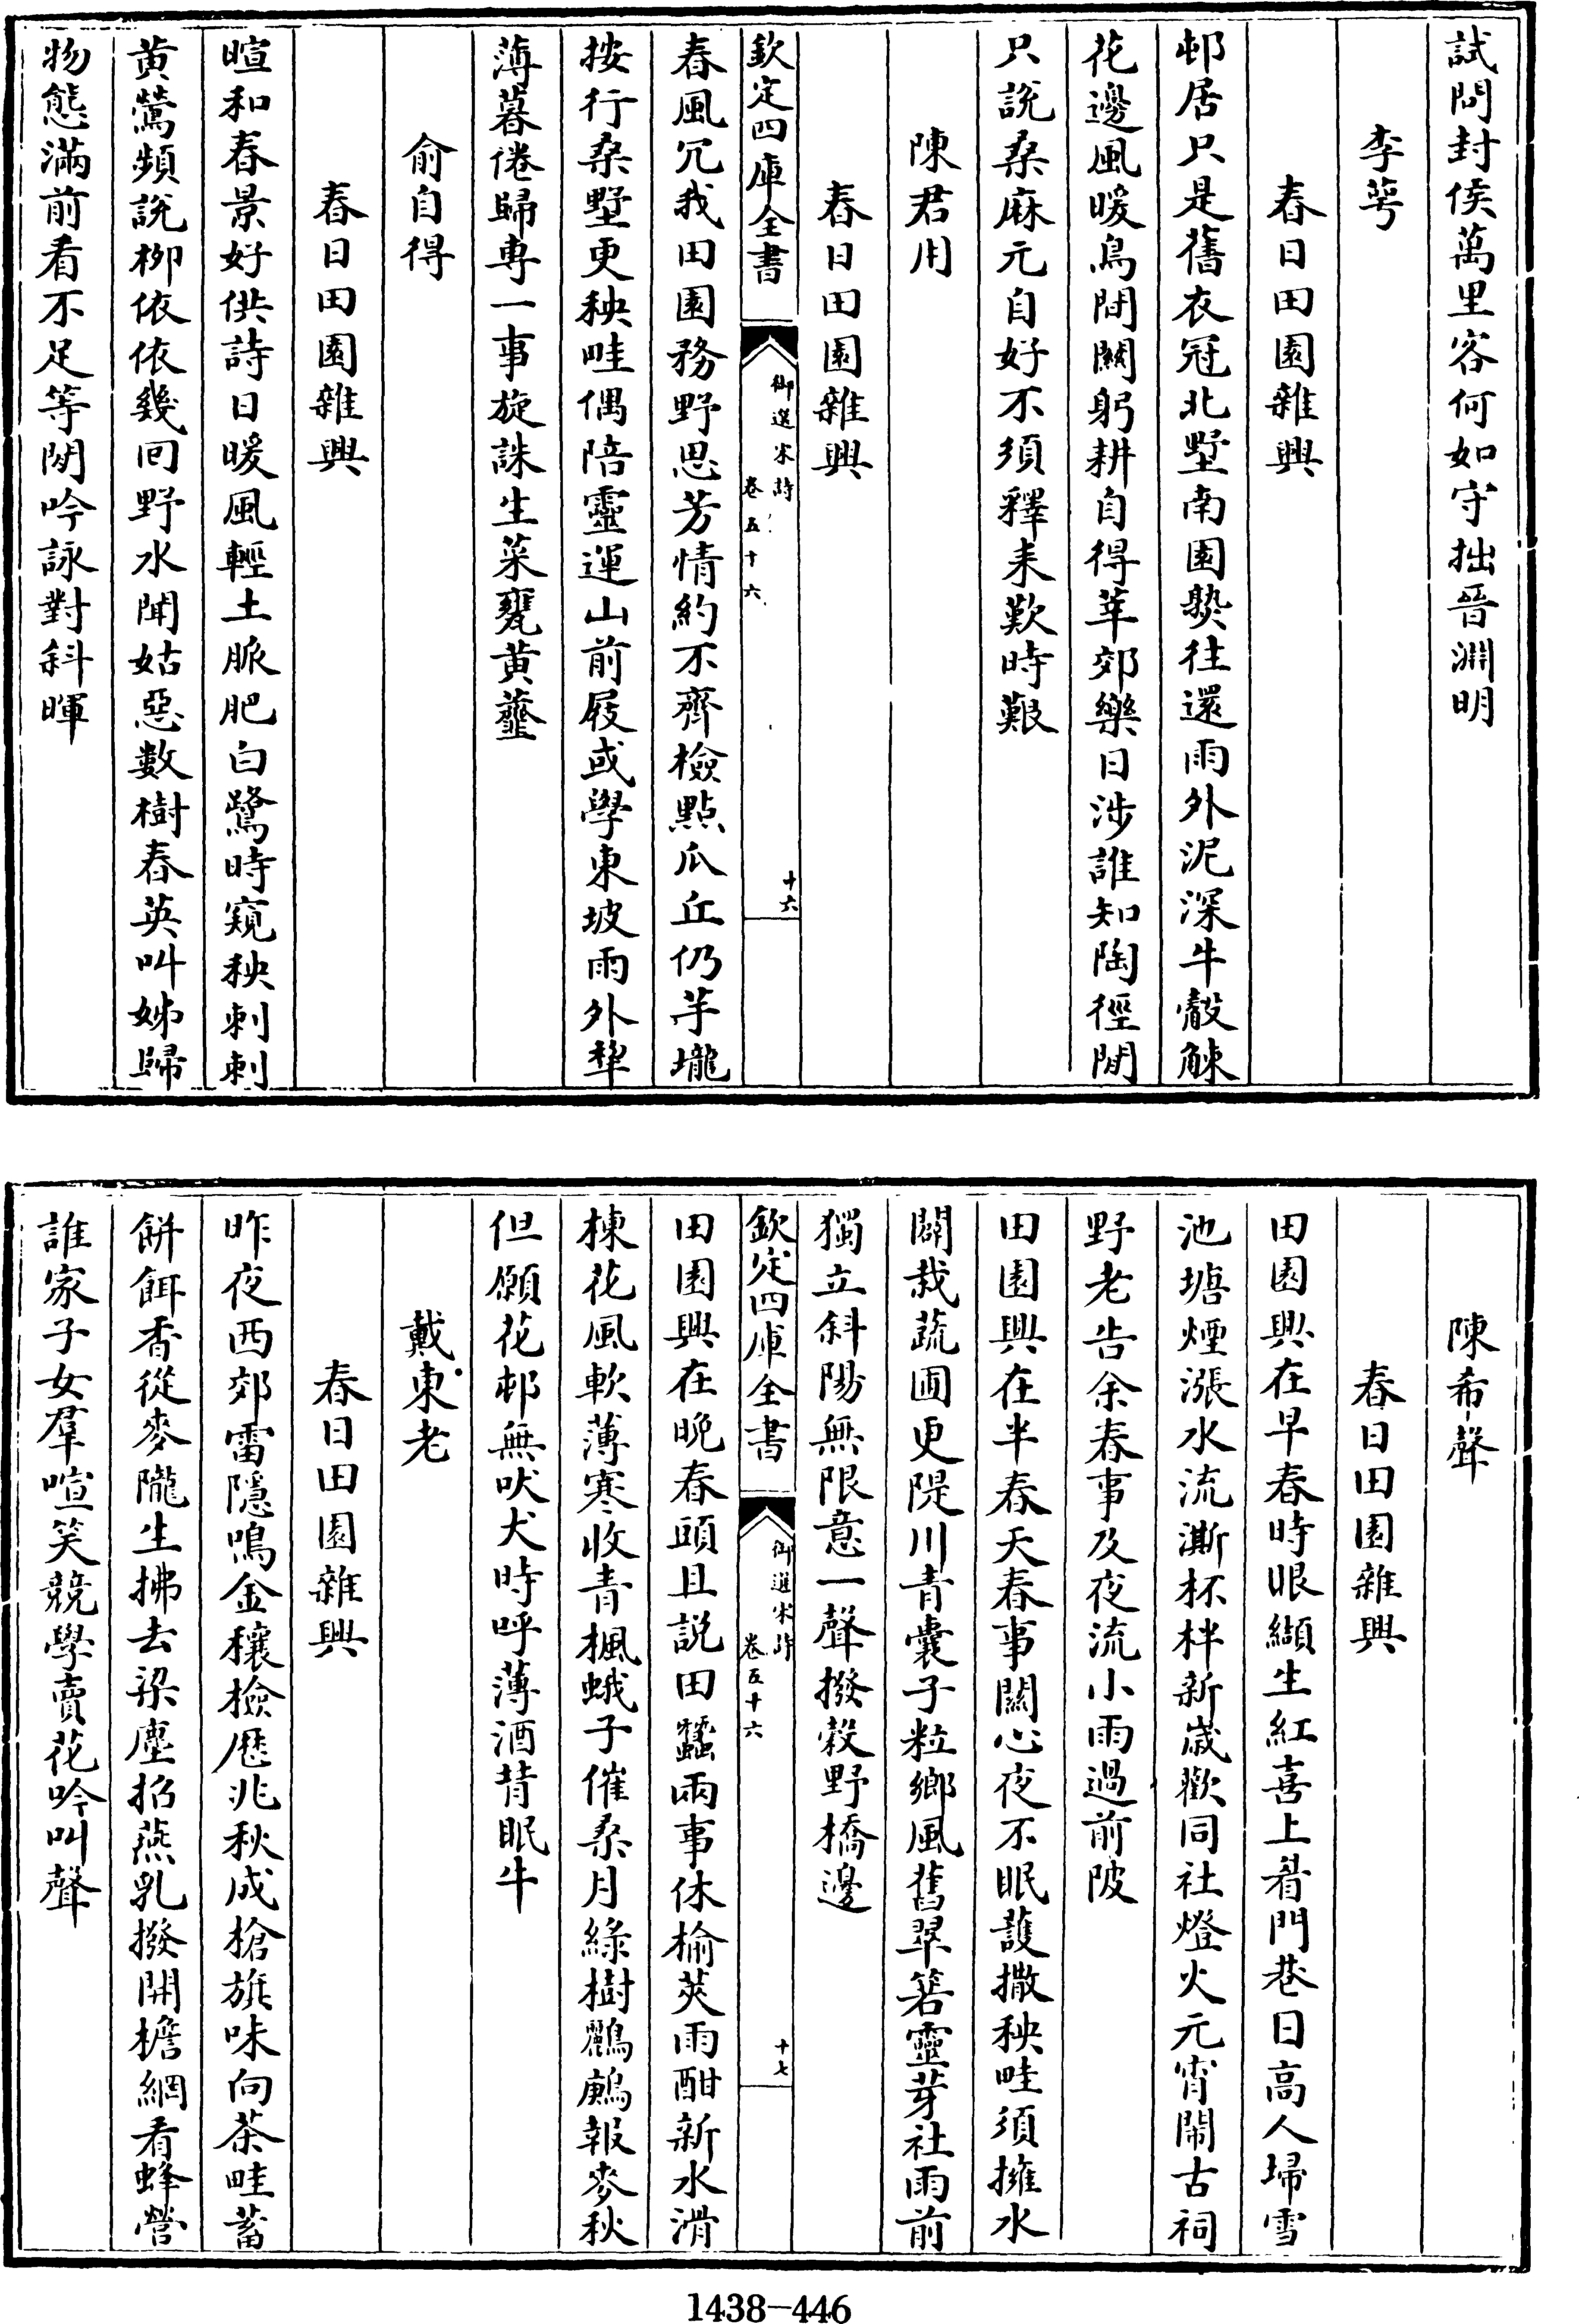 試問封侯萬里客何如守拙晉淵明
李萼
春日田園雜興
邨居只是舊衣冠北墅南園槩往還雨外泥深牛觳觫
花邊風暖鳥間關躬耕自得莘郊樂日涉誰知陶徑閒
只說桑麻元自好不須釋耒歎時艱
陳君用
春日田園雜興
欽定四庫全書
御選宋詩
卷五十六
十六
春風冗我田園務野思芳情約不齊檢點瓜丘仍芋壠
按行桑墅更秧畦偶陪靈運山前屐或學東坡雨外犂
薄暮倦歸專一事旋誅生菜甕黄虀
俞自得
春日田園雜興
暄和春景好供詩日暖風輕土脈肥白鷺時窺秧刺刺
黄鶯頻說栁依依幾回野水聞姑惡數樹春英叫姊歸
物態滿前看不足等閒吟詠對斜暉
陳希聲
春日田園雜興
田園興在早春時眼纈生紅喜上眉門巷日高人埽雪
池塘煙漲水流澌杯柈新歲歡同社燈火元宵鬧古祠
野老告余春事及夜流小雨過前陂
田園興在半春天春事關心夜不眠䕶撒秧畦須擁水
闢栽蔬圃更隄川青囊子粒鄉風舊翠箬靈芽社雨前
獨立斜陽無限意一聲撥穀野橋邊
欽定四庫全書
御選宋詩
卷五十六
十七
田園興在晚春頭且説田蠶兩事休榆莢雨酣新水滑
楝花風軟薄寒收青楓蛾子催桑月綠樹鸝鶊報麥秋
但願花邨無吠犬時呼薄酒背眠牛
戴東老
春日田園雜興
昨夜西郊雷隱鳴金穰檢厯兆秋成槍旂味向茶畦蓄
餅餌香從麥隴生拂去梁塵招燕乳撥開檐網看蜂營
誰家子女羣喧笑競學賣花吟叫聲
1438-446